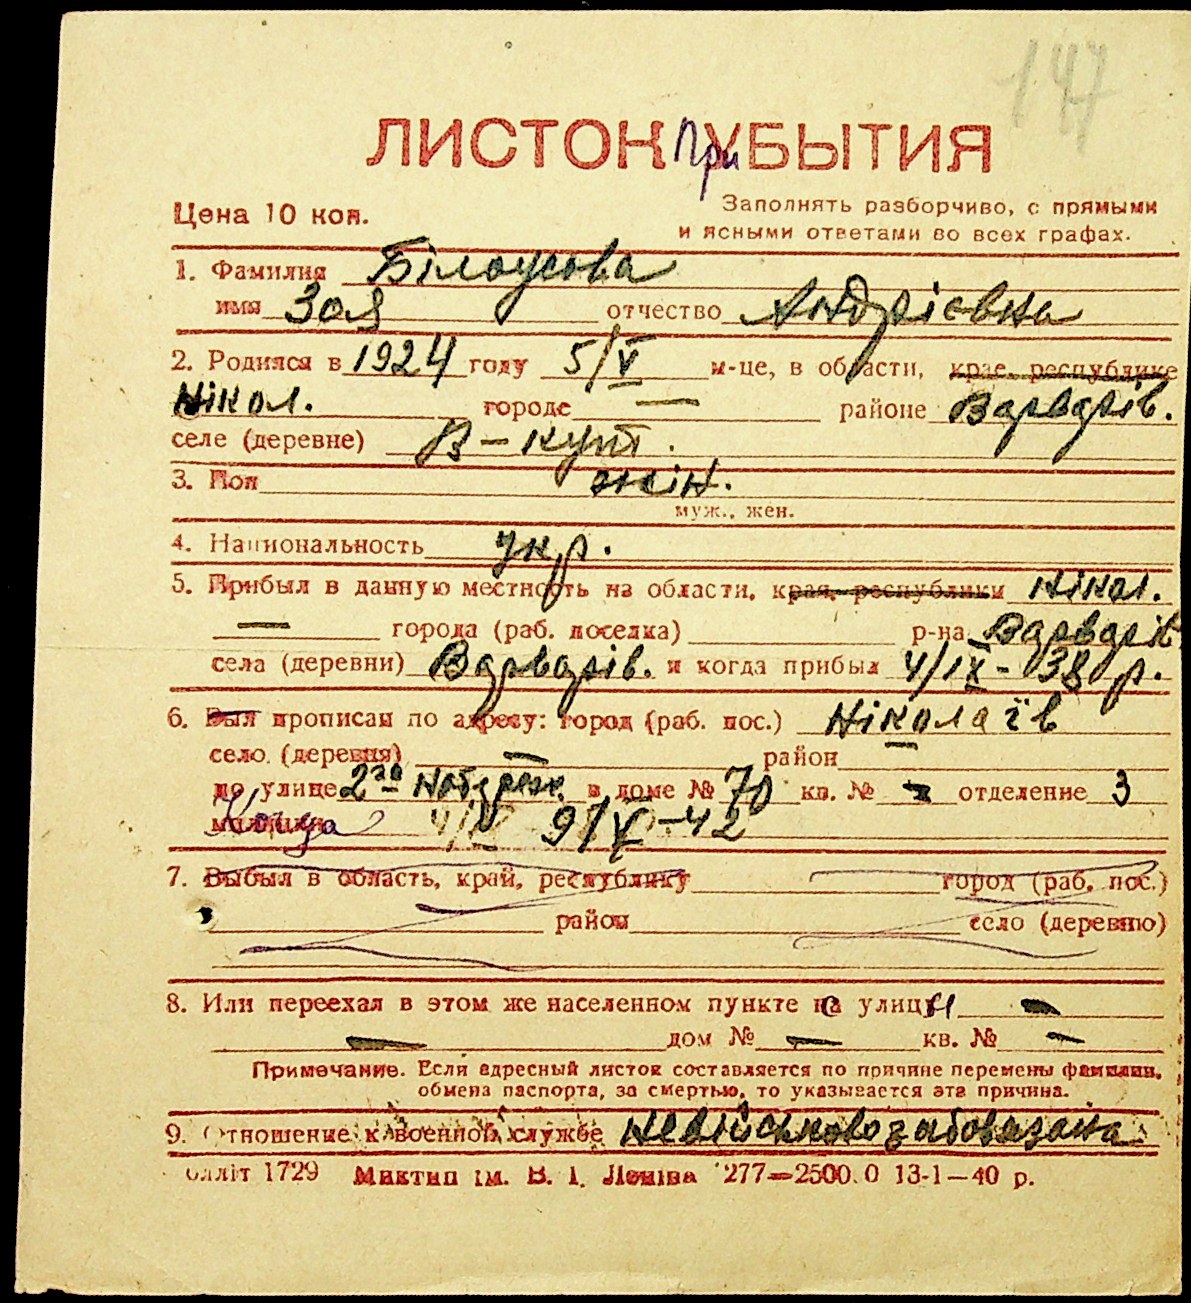 147
ЛИСТОК При УБЫТИЯ
Цена 10 коп.
Заполнять разборчиво, с прямыми
и ясными ответами во всех графах.
1. Фамилия Білоусова
имя Зоя отчество Андріевна
2. Родился в 1924 году 5/V м-це, в области, крае, республике
Нікол. городе — районе Варварів.
селе (деревне) В-Кут.
3. Пол жін.
муж., жен.
4. Национальность укр.
5. Прибыл в данную местность из области, края, республики Нікол.
— города (раб. поселка) р-на Варварів
села (деревни) Варварів. и когда прибыл 4/IX-38 р.
6. Был прописан по адресу: город (раб. пос.) Ніколаїв
село (деревня) — район —
по улице 2га Набереж. в доме № 70 кв. № - отделение 3
милиции Когда 9/V-42
7. Выбыл в область, край, республику город (раб. пос.)
район село (деревню)
8. Или переехал в этом же населенном пункте с улицы —
— дом № — кв. № —
Примечание. Если адресный листок составляется по причине перемены фамилии,
обмена паспорта, за смертью, то указывается эта причина.
9. Отношение к военной службе невійськовозабовязана
олліт 1729 Миктип ім. В. І. Леніна 277—2500.0 13-1—40 р.